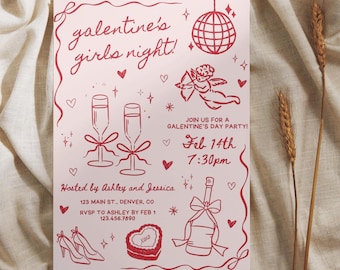 galentine's
girls night!
JOIN US FOR A
GALENTINE'S DAY PARTY!
Feb. 14th
7:30pm
Hosted by Ashley and Jessica
123 MAIN ST., DENVER, CO
RSVP TO ASHLEY BY FEB 1
123.456.7890